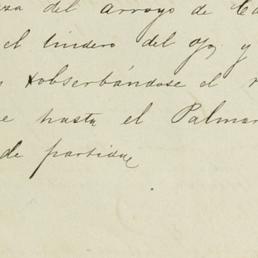 del arroyo de
el lindero del y
observándose el
hasta el Palmar
de partida